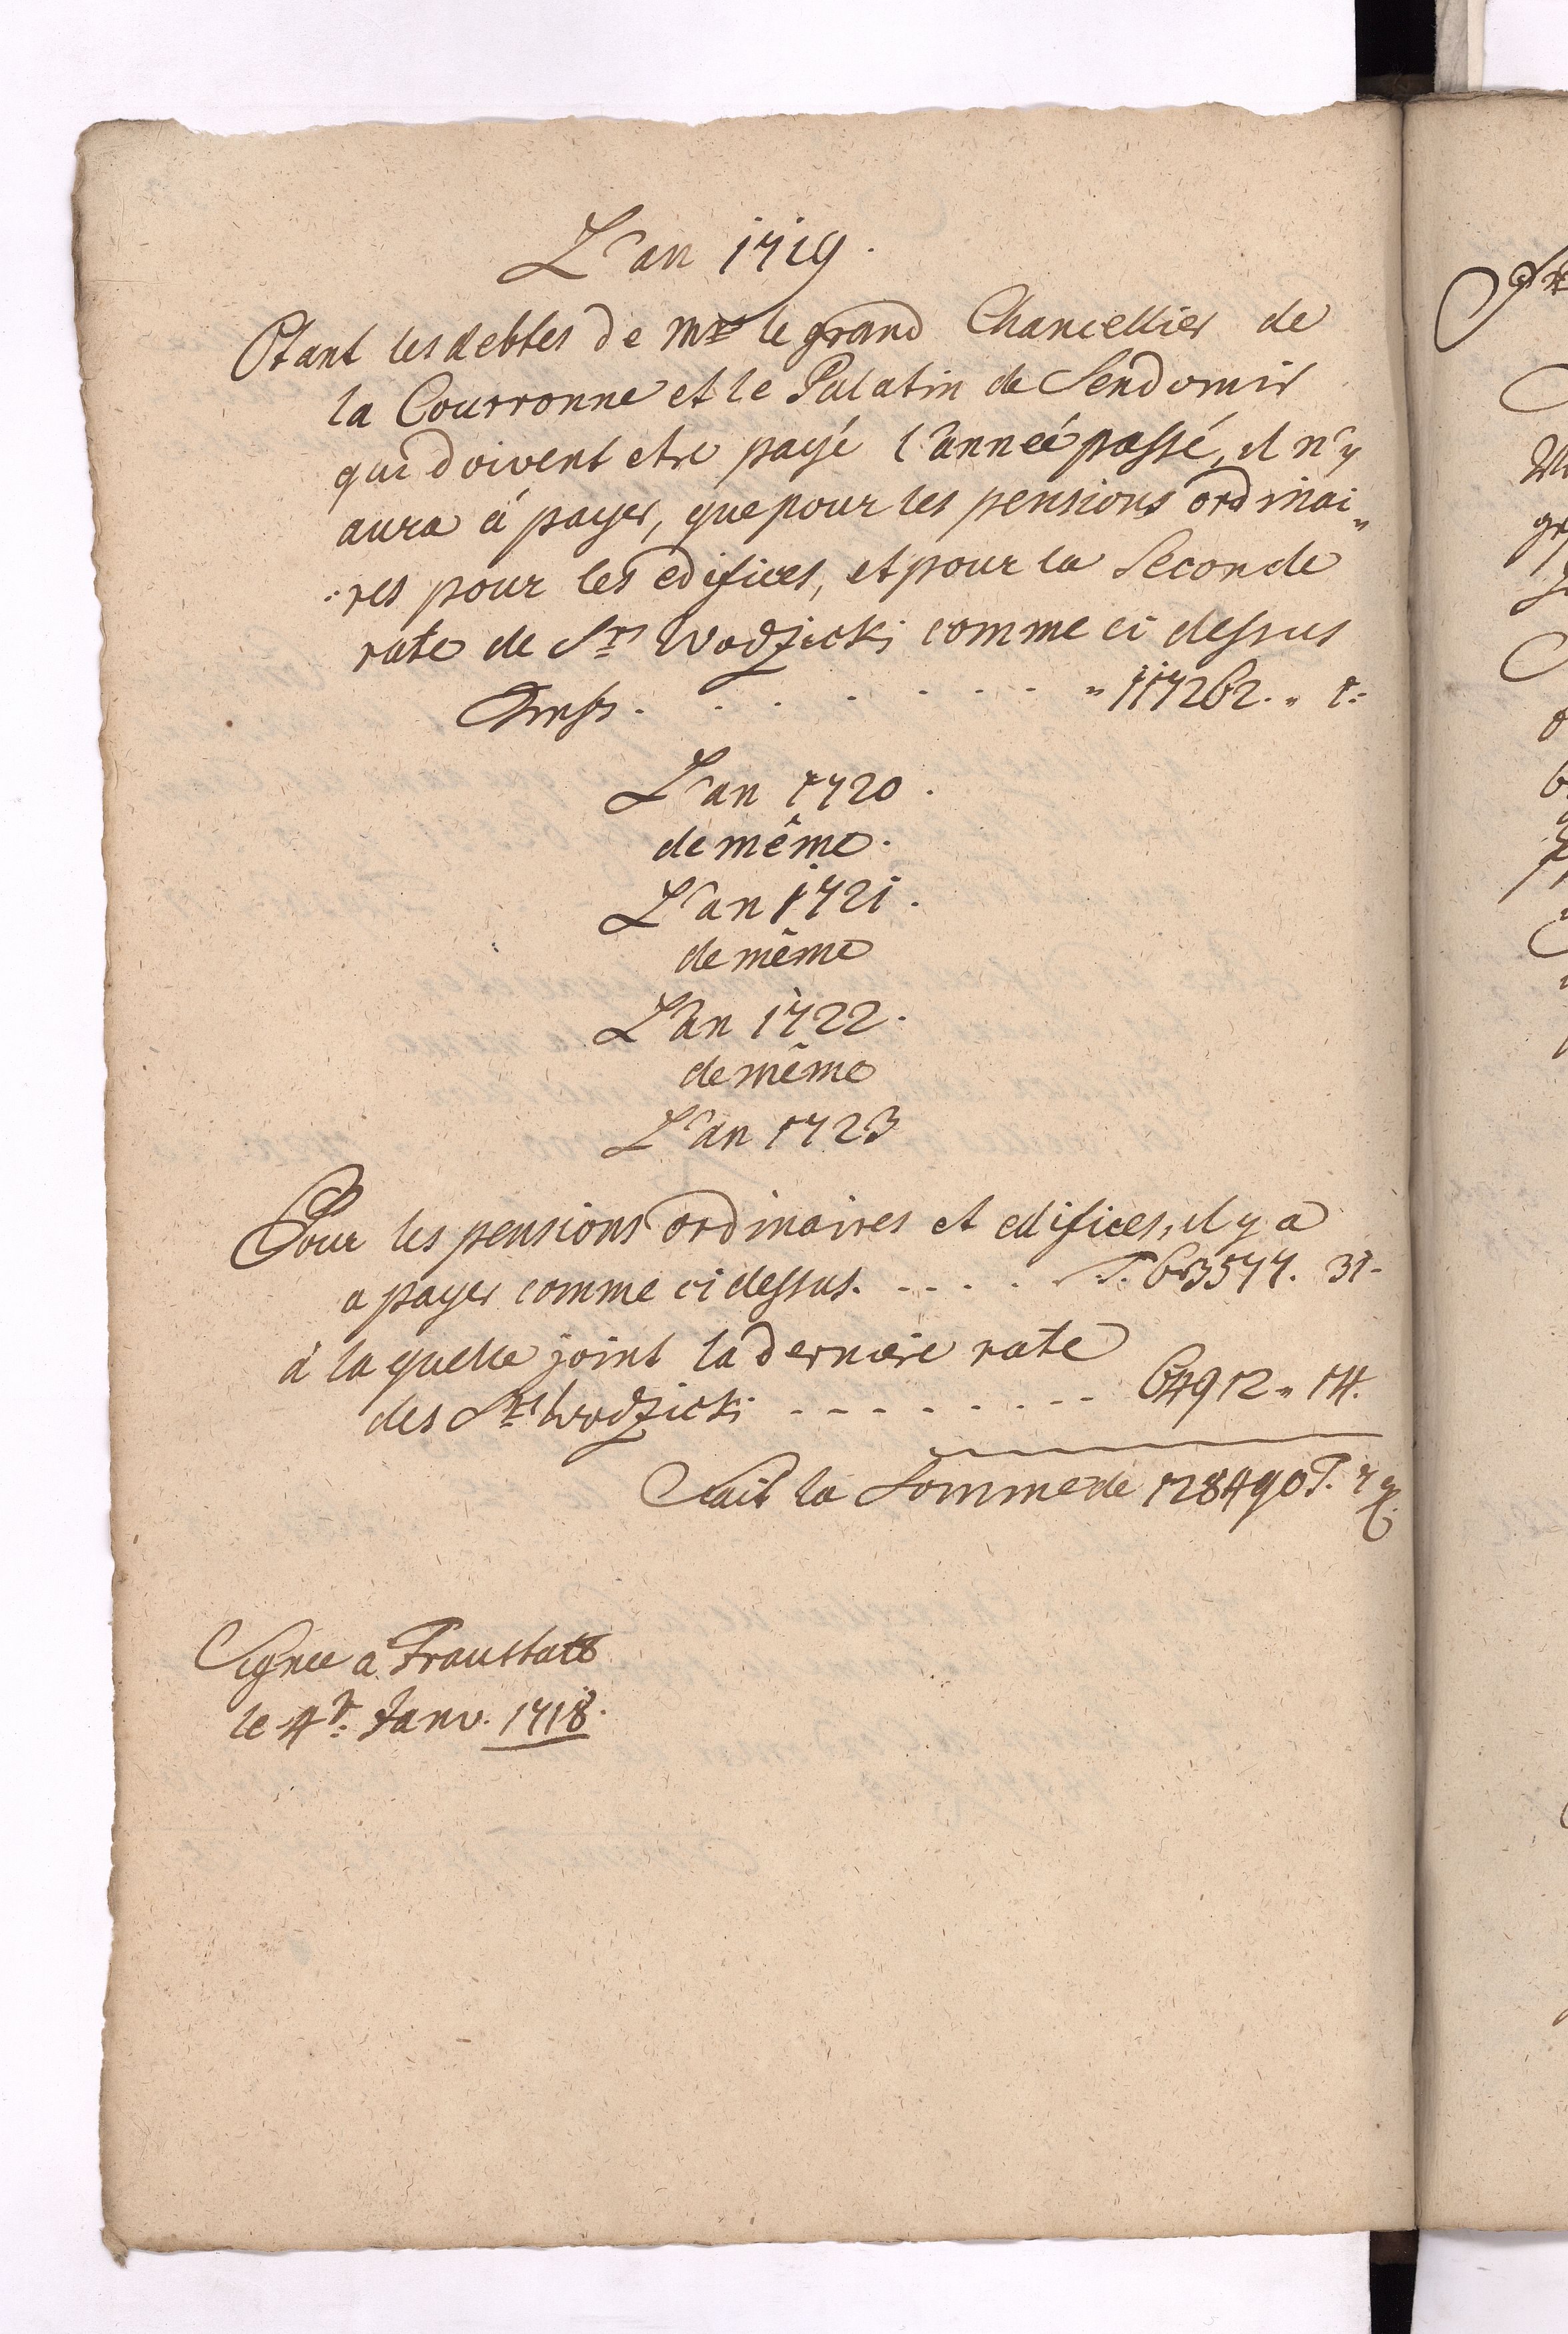 L'an 1719.
Otant les debtes de Mr le grand Chancellier de
la Courronne et le Palatin de Sendomir
qui doivent etre payé l'anneé passé, il n'y
aura á payer, que pour les pensions ordinai„
:res pour les edifices, et pour la Seconde
rate de Srs Wodzicki comme ci dessus
Tymfs. . . . . . . . „ 117262. „ 1:
L'an 1720.
de même.
L'an 1721.
de même
L'an 1722.
de même
L'an 1723
Pour les pensions ordinaires et edifices, il y a
a payer comme ci dessus. . . . . . T. 63577. 31-
á la quelle joint la derniere rate
des Srs Wodzicki - - - - - - - - 64912 „ 14.
Fait la Somme de 128490 T. 7
Signee a Fraustatt
le 4t: Janv. 1718.